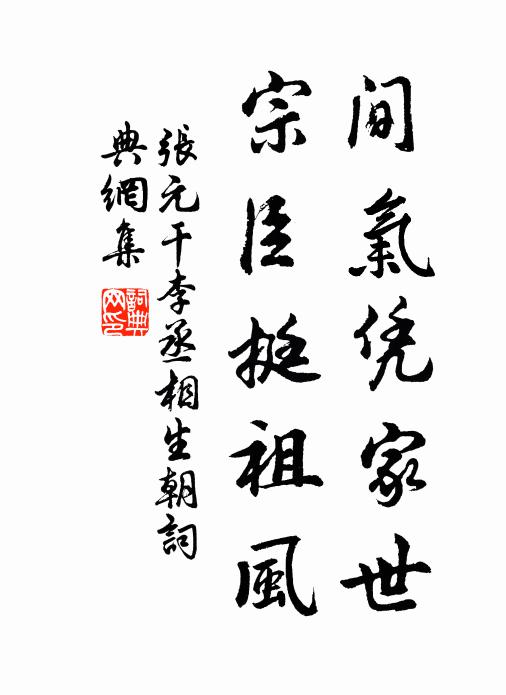 间氣凭家世
宗臣挺祖風
張元干李丞相生朝詞
典網集
詞典
网印